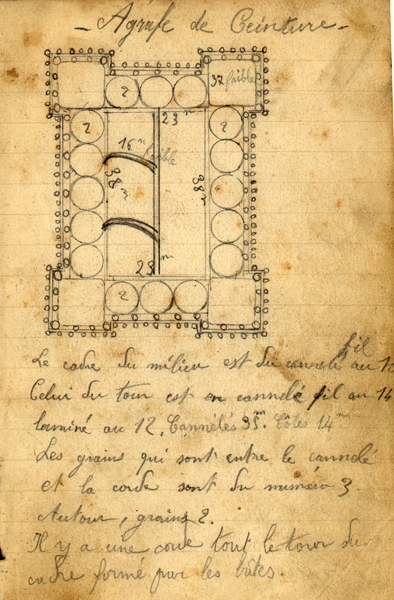 - Agrafe de Ceinture -
2
37 faible
2
23 m
2
16 m faible
38 m
38 m
23 m
2
fil
Le cadre du milieu est du cannelé au 10
Celui du tour est en cannelé fil au 14
laminé au 12. Cannelés 35 m. Côtés 14 m
Les grains qui sont entre le cannelé
et la corde sont du numéro 3.
Autour, grains 2.
Il y a une corde tout le tour du
cadre formé par les bâtes.